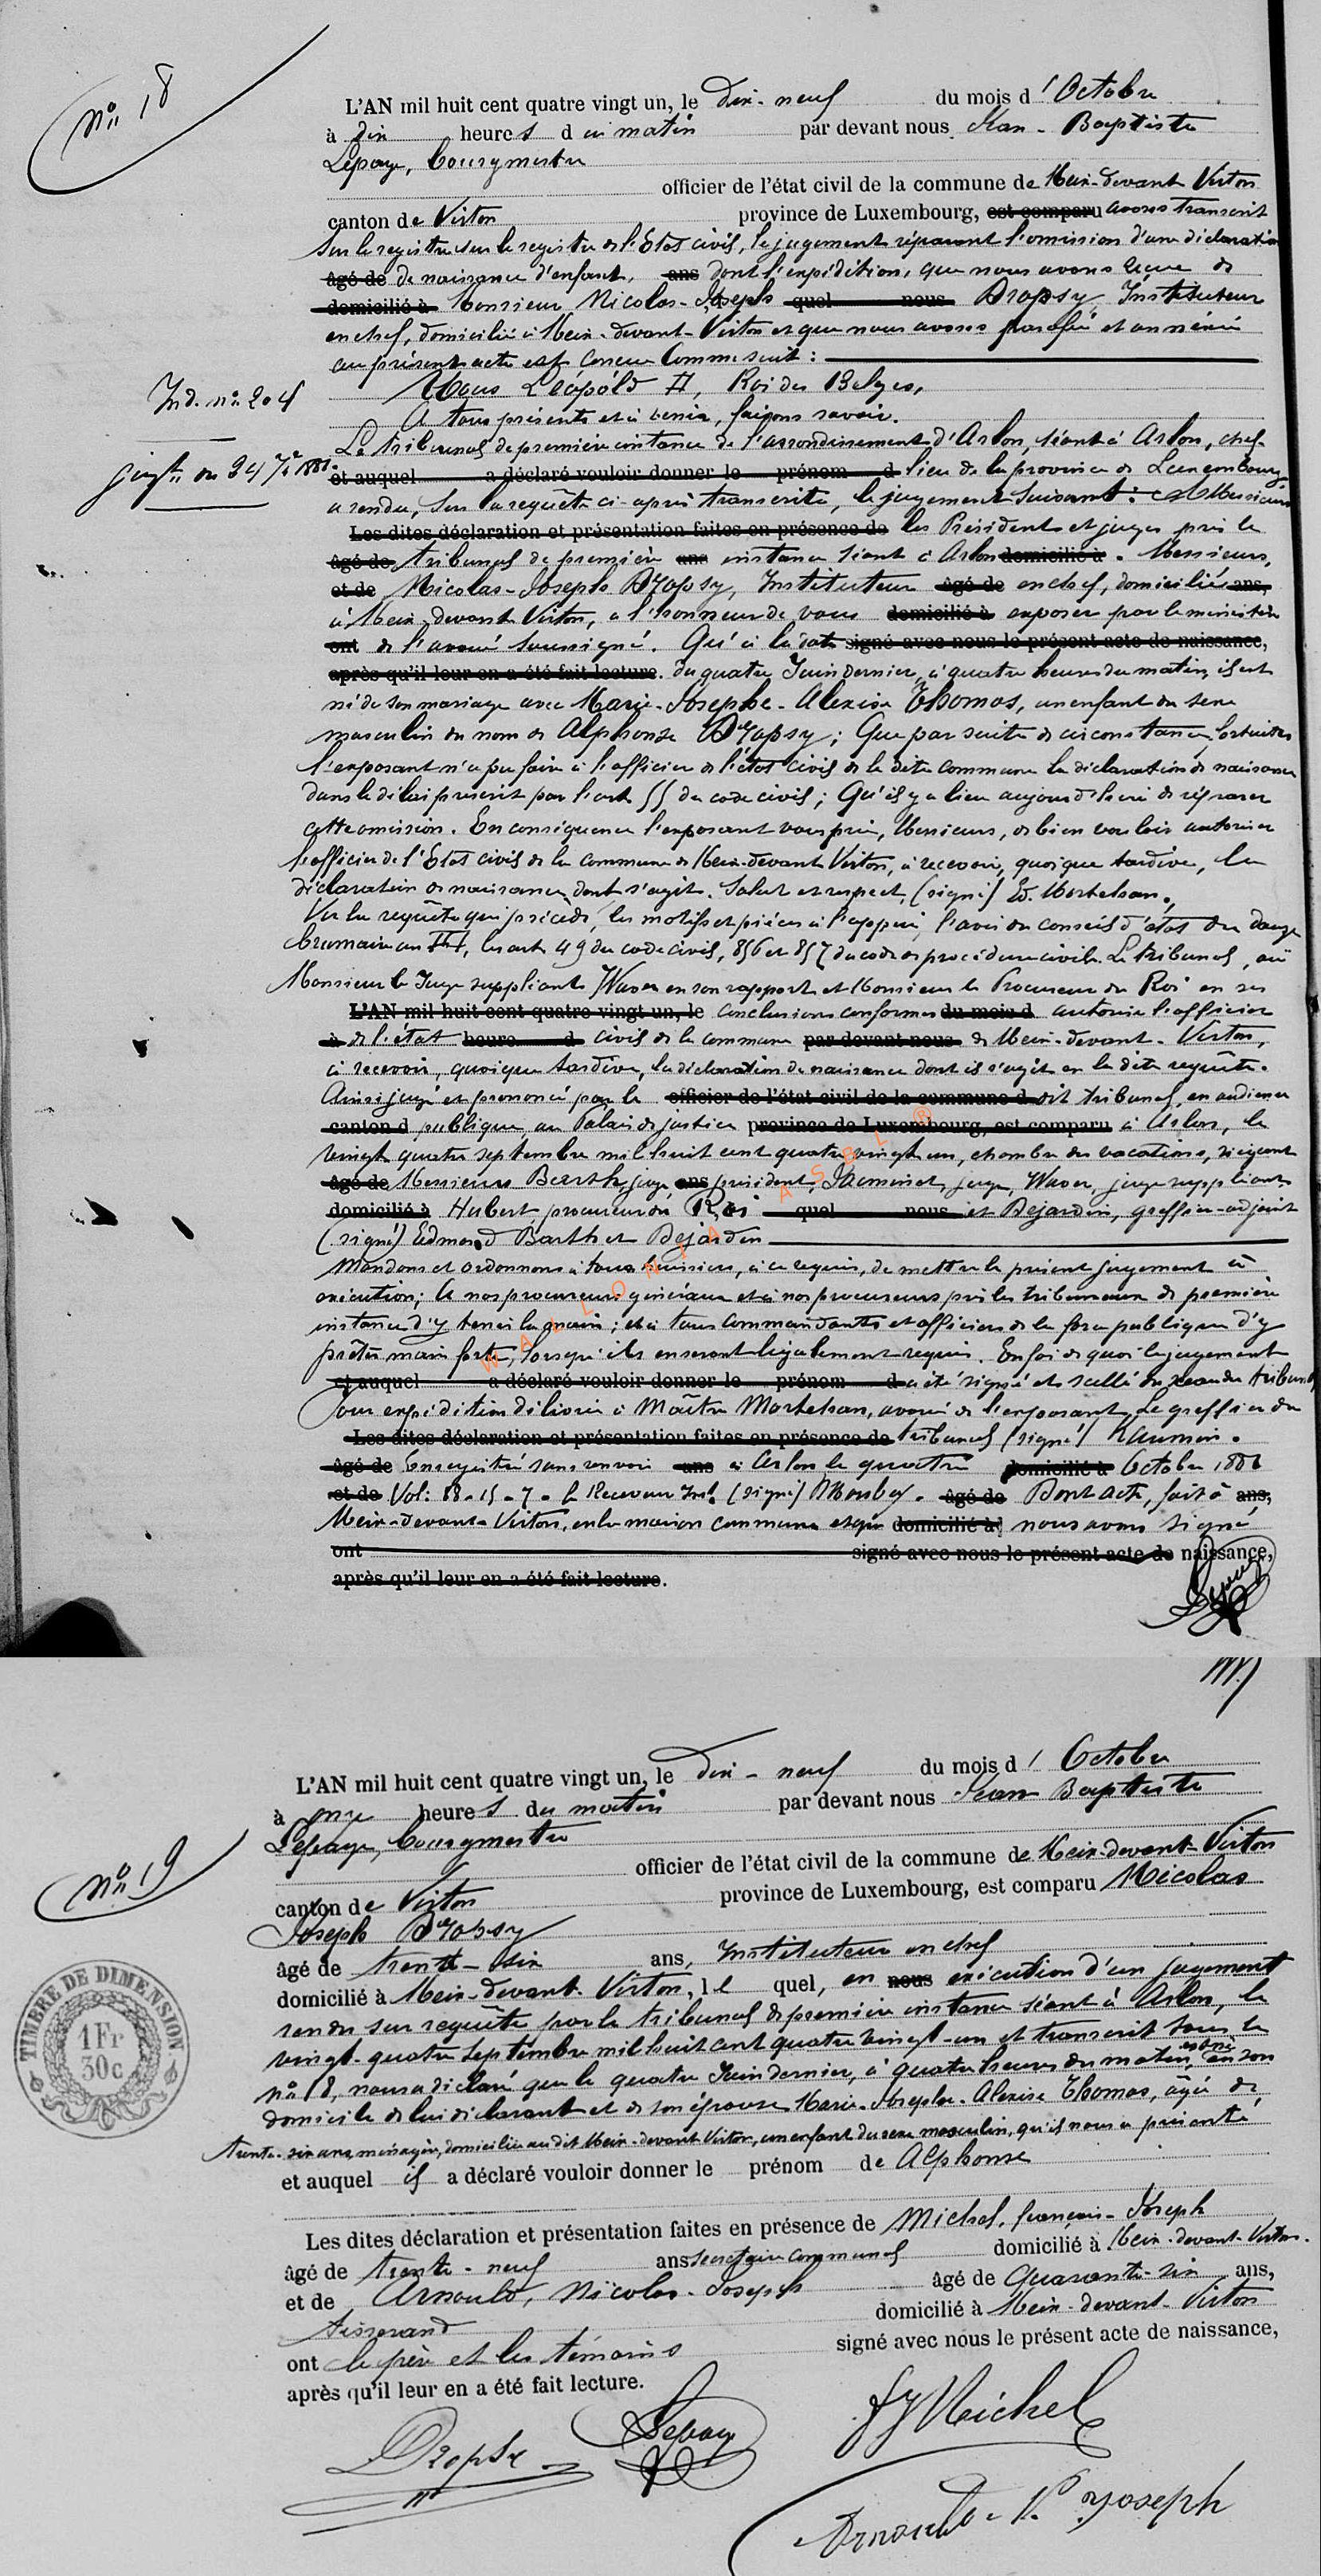 N° 18
L'AN mil huit cent quatre vingt un, le dix-neuf du mois d'Octobre
à dix heures du matin par devant nous Jean-Baptiste
Lepage, bourgmestre
officier de l'état civil de la commune de Meix-devant Virton
canton de Virton province de Luxembourg, est comparu avons transcrit
sur le registre sur le registre de l'Etat civil, le jugement réparant l'omission d'une déclaration
âgé de de naissance d'enfant, ans dont l'expédition, que nous avons reçue de
domicilié à Monsieur Nicolas-Joseph quel nous Dropsy Instituteur
en chef, domicilié à Meix-devant-Virton et que nous avons paraphé et annexée
au présent acte est conçue comme suit :
Nous Léopold II, Roi des Belges,
A tous présents et à venir, faisons savoir.
Ind. n° 204
Le tribunal de première instance de l'arrondissement d'Arlon, séant à Arlon, chef-
et auquel a déclaré vouloir donner le prénom d lieu de la province de Luxembourg
jugt du 24 7bre 1881.
a rendu, sur la requête ci-après transcrite, le jugement suivant : Messieurs
Les dites déclaration et présentation faites en présence de les Président et juges près le
âgé de tribunal de première ans instance séant à Arlon domicilié à . Messieurs,
et de Nicolas-Joseph Dropsy, Instituteur âgé de en chef, domicilié ans,
à Meix-devant Virton, a l'honneur de vous domicilié à exposer par le ministère
ont de l'avoué soussigné. Qu'à la date signé avec nous le présent acte de naissance,
après qu'il leur en a été fait lecture. du quatre Juin dernier, à quatre heures du matin, il est
né de son mariage avec Marie-Josephe-Alexise Thomas, un enfant du sexe
masculin du nom de Alphonse Dropsy; Que par suite de circonstances fortuites
l'exposant n'a pu faire à l'officier de l'état civil de la dite commune la déclaration de naissance
dans le délai prescrit par l'art 55 du code civil; Qu'il y a lieu aujourd'hui de réparer
cette omission. En conséquence l'exposant vous prie, Messieurs, de bien vouloir autoriser
l'officier de l'Etat civil de la commune de Meix-devant Virton, à recevoir, quoique tardive, la
déclaration de naissance dont s'agit. Salut et respect, (signé) Ed. Mortehan.
Vu la requête qui précède, les motifs et pièces à l'appui, l'avis du conseil d'état du douze
brumaire an XI, les arts 49 du code civil, 856 et 857 du code de procédure civile. Le tribunal, ouï
Monsieur le Juge suppliant Waver en son rapport et Monsieur le Procureur du Roi en ses
L'AN mil huit cent quatre vingt un, le conclusions conformes du mois d autorise l'officier
à de l'état heure d civil de la commune par devant nous de Meix-devant-Virton,
à recevoir, quoique tardive, la déclaration de naissance dont il s'agit en la dite requête.
Ainsi jugé et prononcé par le officier de l'état civil de la commune d dit tribunal, en audience
canton d publique, au Palais de justice province de Luxembourg, est comparu à Arlon, le
vingt quatre septembre mil huit cent quatre vingt un, chambre des vacations, siégeant
âgé de Messieurs Barth, juge, ans président, Jaminet, juge, Waver, juge suppliant
domicilié à Hubert procureur du Roi quel nous et Dejardin, greffier-adjoint
(signé) Edmond Barth et Dejardin
Mandons et ordonnons à tous huissiers, à ce requis, de mettre le présent jugement à
exécution; A nos procureurs généraux et à nos procureurs près les tribunaux de première
instance d'y tenir la main; et à tous commandants et officiers de la force publique d'y
prêter main forte, lorsqu'ils en seront légalement requis. En foi de quoi le jugement
et auquel a déclaré vouloir donner le prénom d a été signé et scellé du sceau du tribunal
Pour expédition délivrée à Maître Mortehan, avoué de l'exposant, Le greffier du
Les dites déclaration et présentation faites en présence de tribunal (signé)
âgé de Enregistré sans renvoi ans à Arlon le quatre domicilié à Octobre 1881
et de Vol: 18-15-7. Le Receveur (signé) âgé de Dont acte, fait à ans,
Meix-devant-Virton, en la maison commune et que domicilié à nous avons signé
ont signé avec nous le présent acte de naissance,
après qu'il leur en a été fait lecture.
Lepage
WALLONIA ASBL ®
N° 19
L'AN mil huit cent quatre vingt un, le dix-neuf du mois d'Octobre
à onze heures du matin par devant nous Jean Baptiste
Lepage, bourgmestre
officier de l'état civil de la commune de Meix-devant-Virton
canton de Virton province de Luxembourg, est comparu Nicolas
Joseph Dropsy
âgé de trente-six ans, Instituteur en chef
domicilié à Meix-devant-Virton, le quel, en nous exécution d'un jugement
rendu sur requête par le tribunal de première instance séant à Arlon, le
vingt-quatre septembre mil huit cent quatre vingt-un et transcrit sous le
n° 18, nous a déclaré que le quatre Juin dernier, à quatre heures du matin, est né en son
domicile de lui déclarant et de son épouse Marie-Josephe-Alexise Thomas, âgée de
trente-six ans, ménagère, domiciliée au dit Meix-devant Virton, un enfant du sexe masculin, qu'il nous a présenté
et auquel il a déclaré vouloir donner le prénom de Alphonse
Les dites déclaration et présentation faites en présence de Michel, françois-Joseph
âgé de trente-neuf ans secrétaire communal domicilié à Meix-devant-Virton.
et de Arnould, Nicolas-Joseph âgé de quarante-six ans,
tisserand domicilié à Meix-devant-Virton
ont le père et les témoins signé avec nous le présent acte de naissance,
après qu'il leur en a été fait lecture.
TIMBRE DE DIMENSION
1 Fr
30c
Dropsy Lepage fJ Michel
Arnould N. Joseph